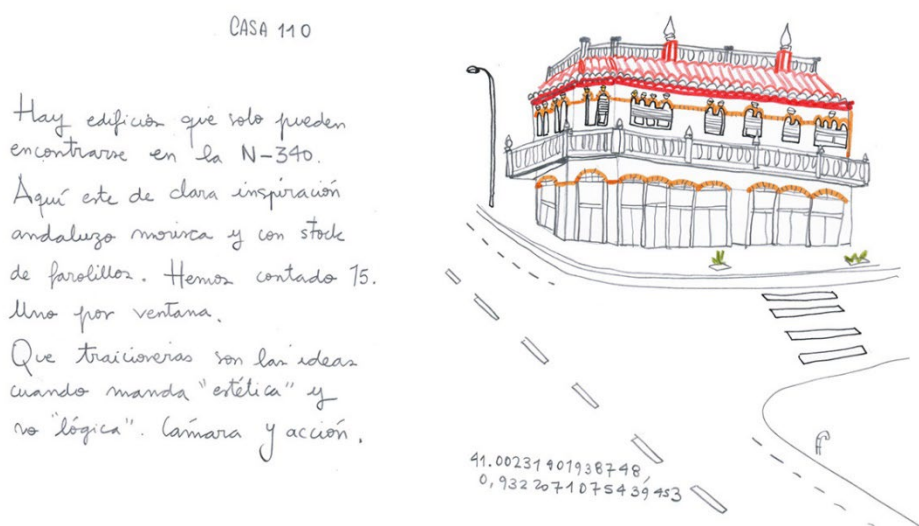 CASA 110
Hay edificios que solo pueden
encontrarse en la N-340.
Aquí este de clara inspiración
andaluzo morisca y con stock
de farolillos. Hemos contado 15.
Uno por ventana.
Que traicioneras son las ideas
cuando manda "estética" y
no "lógica". Cámara y acción.
41.00231901938748,
0,9322071075439453